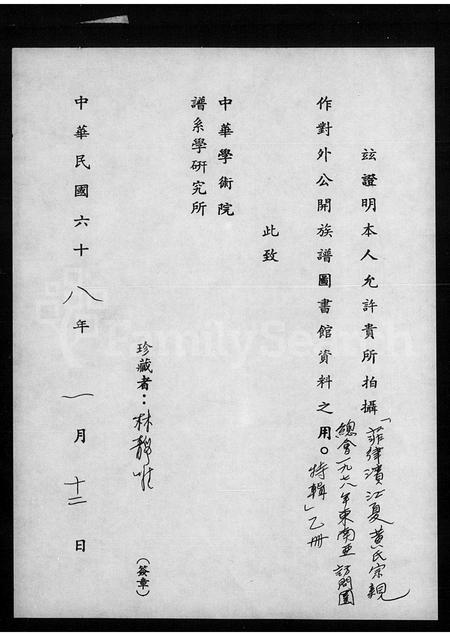 茲證明本人允許貴所拍攝「菲律濱江夏黃氏宗親
總會一九七八年東南亞訪問團
特輯」乙冊
作對外公開族譜圖書館資料之用。
此致
中華學術院
譜系學研究所
珍藏者：林靜
(簽章)
中華民國六十八年一月十二日
FamilySearch